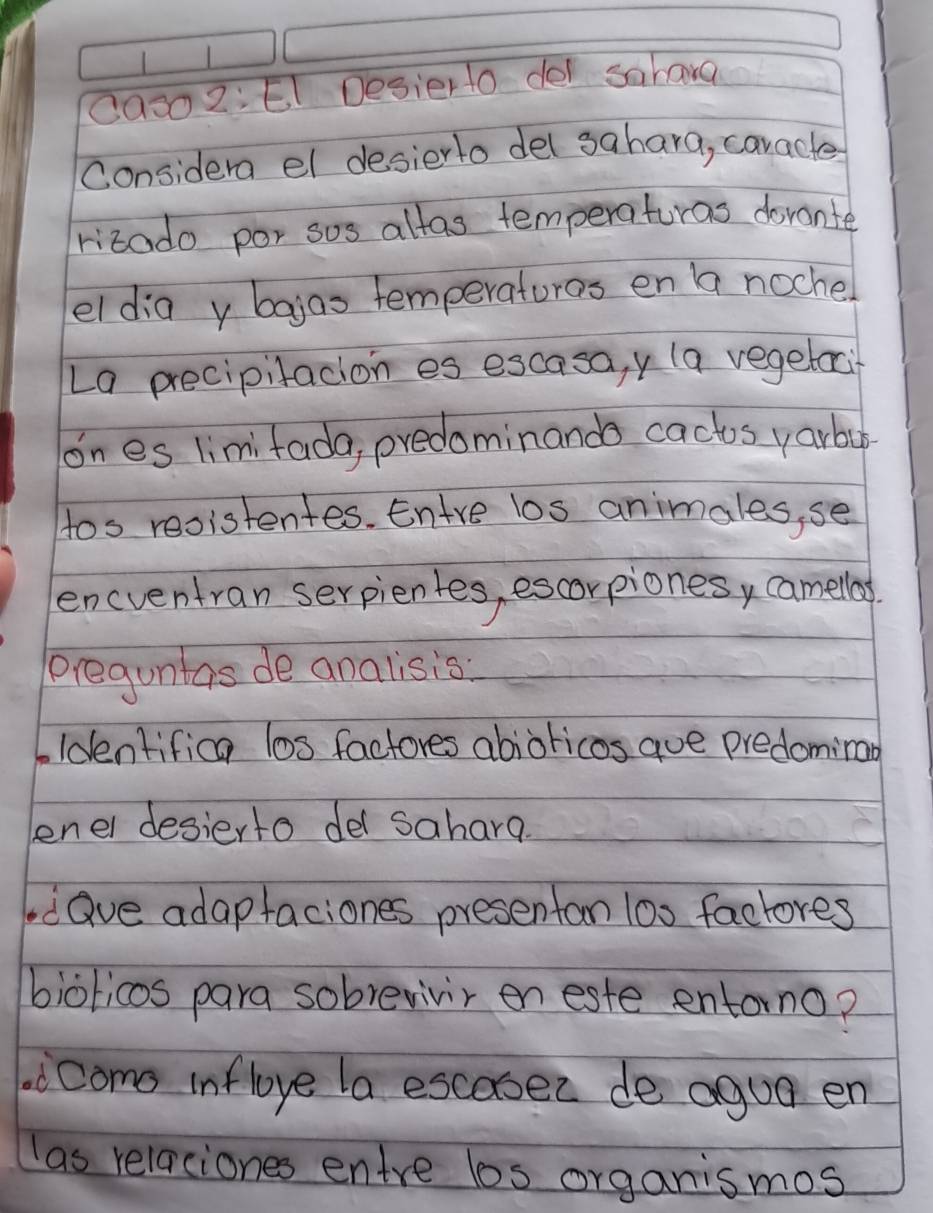 Caso 2: El Desierto del sahara
Considera el desierto del sahara, caracte
rizado por sus altas temperaturas durante
el dia y bajas temperaturas en la noche.
La precipitación es escasa, y la vegetaci
ón es limitada, predominando cactus y arbus-
tos resistentes. Entre los animales, se
encuentran serpientes, escorpiones y camellos.
Preguntas de analisis:
• Identifica los factores abióticos que predominan
en el desierto del sahara.
• ¿Que adaptaciones presentan los factores
bióticos para sobrevivir en este entorno?
• ¿Como influye la escasez de agua en
las relaciones entre los organismos